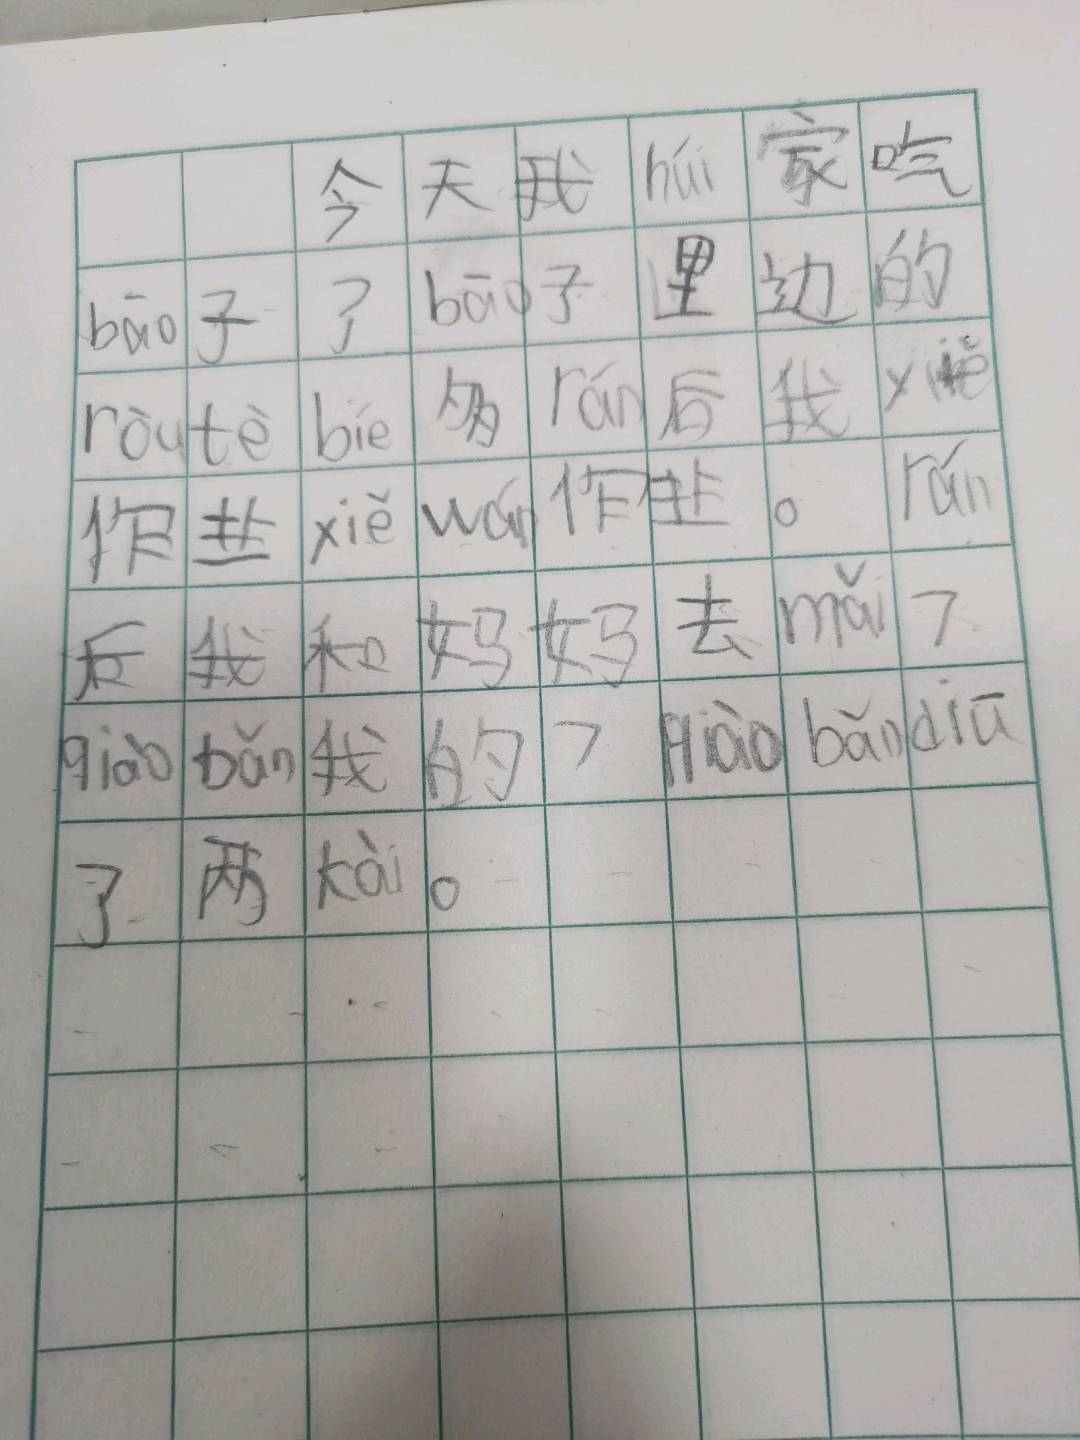 今天我húi家吃
bāo子了bāo子里边的
ròutèbíe多rán后我xiě
作业xiěwán作业。rán
后我和妈妈去mǎi了
qiàobǎn我的了qiàobǎndiū
了两kài。